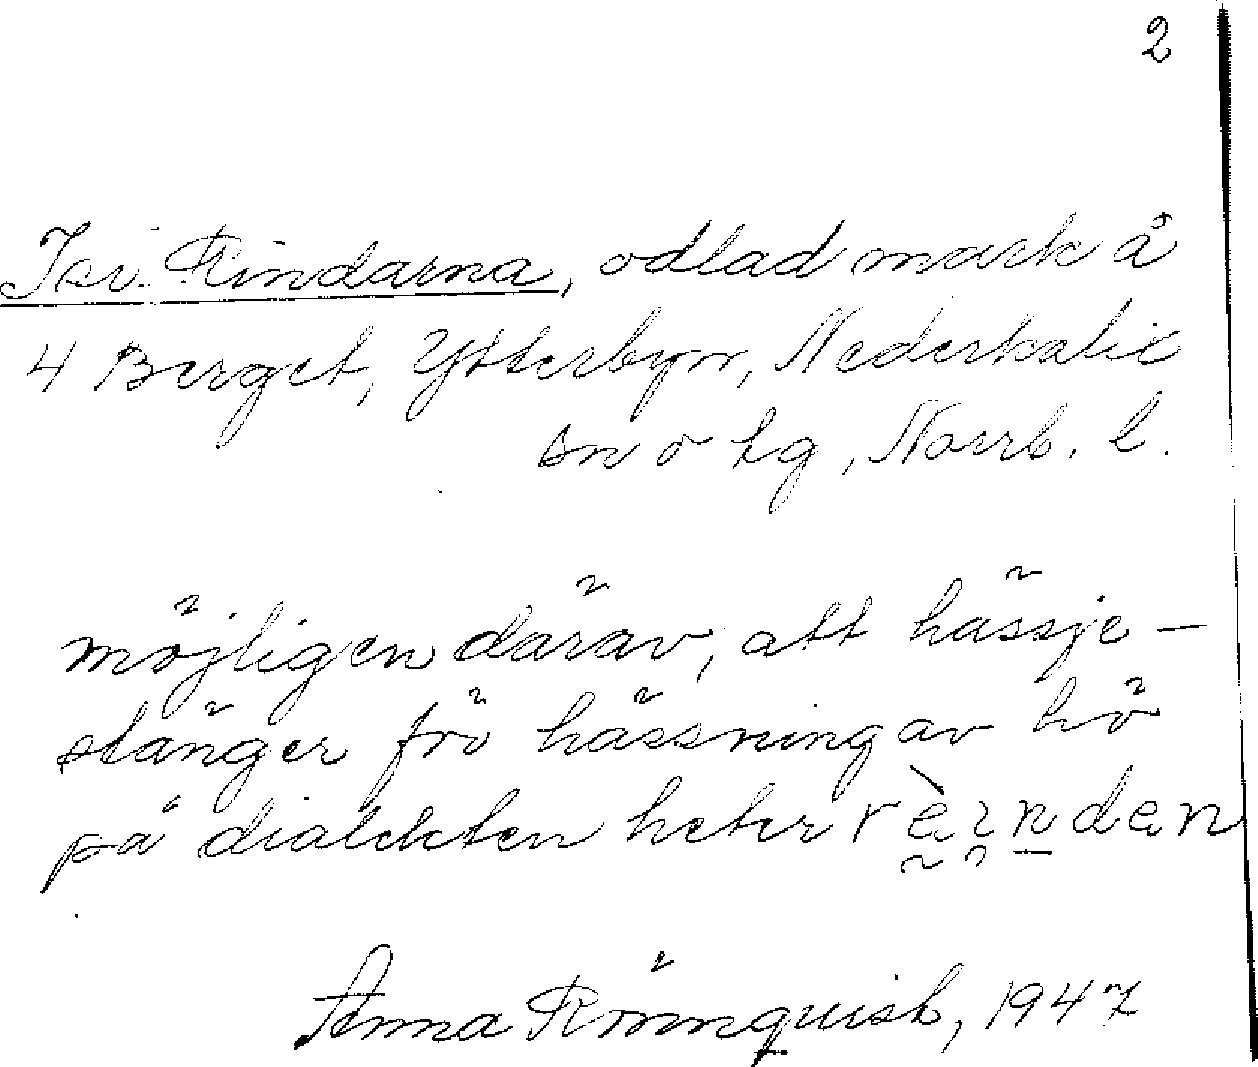 2
Isv. Rindarna, odlad mark å
4 Berget, Ytterbyn, Nederkalix
sn o tg, Norrb. l.
möjligen därav, att hässje-
stänger för hässning av hö
på dialekten heter
Anna Rönnquist, 1947